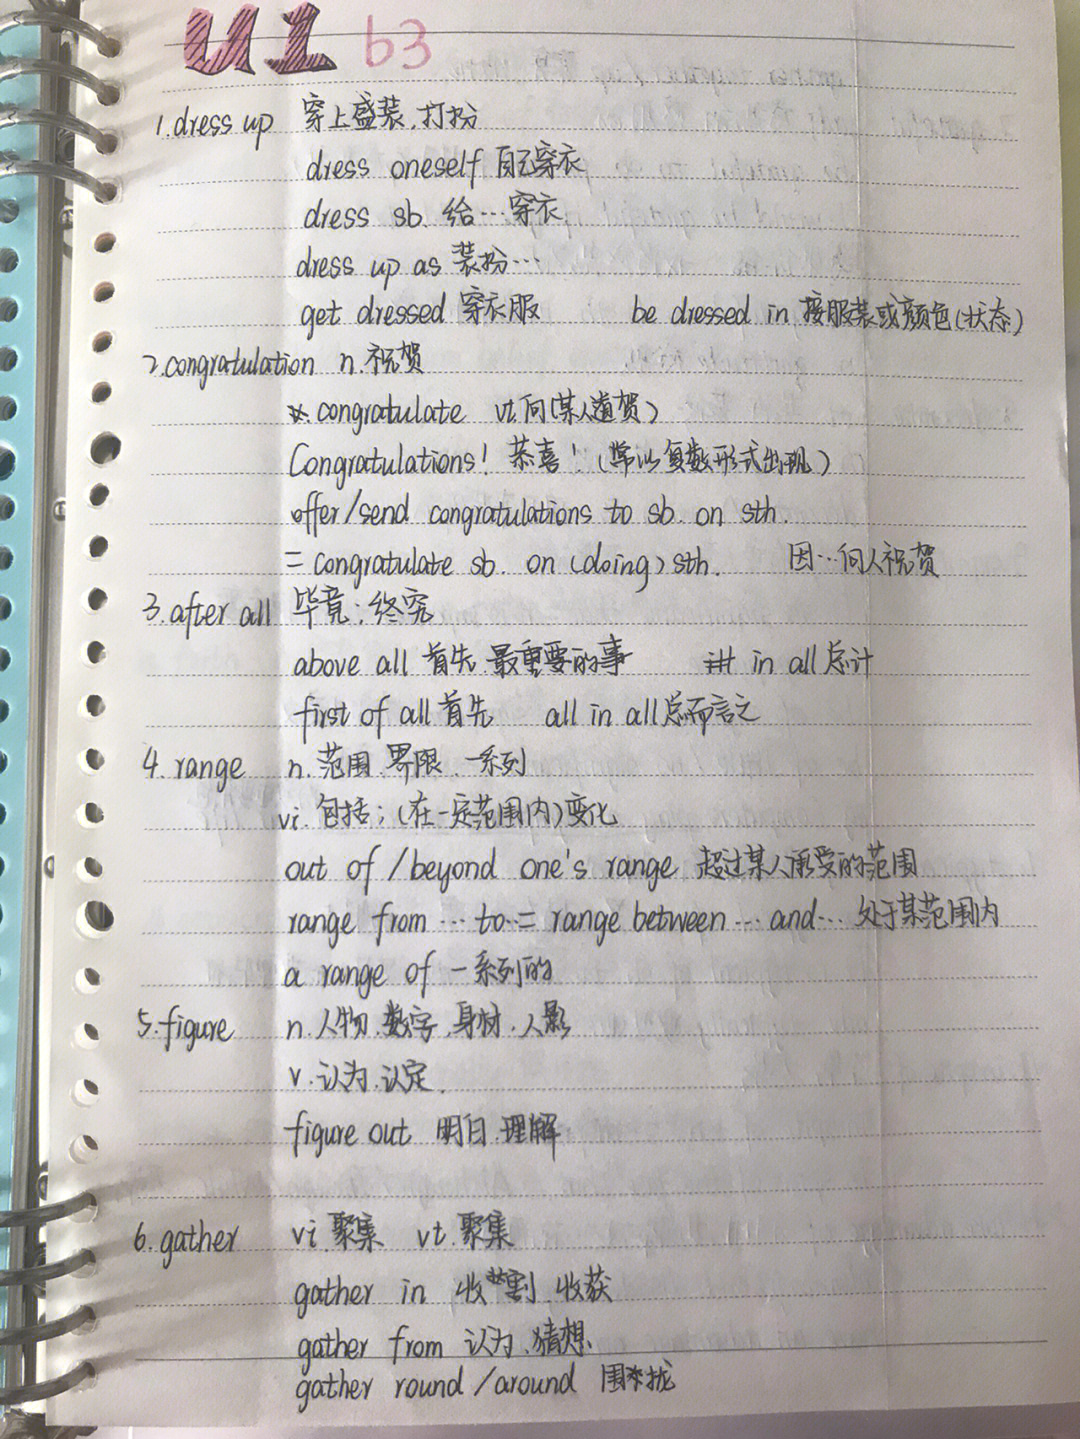 U1 b3
1.dress up 穿上盛装.打扮
dress oneself 自己穿衣
dress sb. 给…穿衣
dress up as 装扮…
get dressed 穿衣服 be dressed in 接服装或颜色(状态)
2.congratulation n.祝贺
congratulate vt.向(某人道贺)
Congratulations! 恭喜!(常以复数形式出现)
offer/send congratulations to sb. on sth.
= congratulate sb. on (doing) sth. 因…向人祝贺
3.after all 毕竟;终究
above all 首先.最重要的事 in all 总计
first of all 首先 all in all 总而言之
4.range n.范围.界限.一系列
vi.包括;(在一定范围内)变化
out of /beyond one's range 超过某人承受的范围
range from … to … = range between … and … 处于某范围内
a range of 一系列的
5.figure n.人物.数字.身材.人影
v.认为.认定.
figure out 明白.理解
6.gather vi.聚集 vt.聚集
gather in 收割 收获
gather from 认为.猜想.
gather round /around 围拢